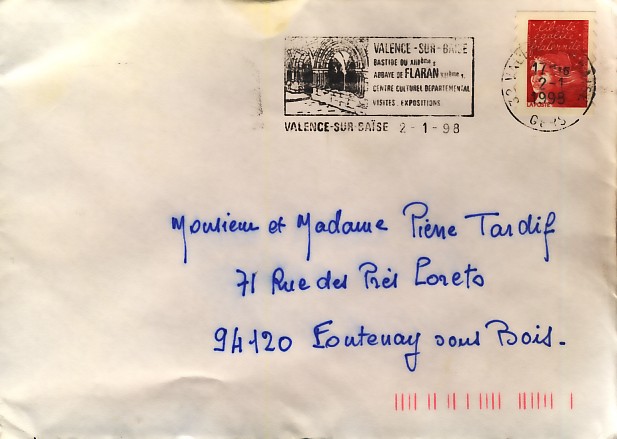 VALENCE-SUR-BAÏSE
BASTIDE DU XIIIème S
ABBAYE DE FLARAN XIIème S
CENTRE CULTUREL DEPARTEMENTAL
VISITES EXPOSITIONS
VALENCE-SUR-BAÏSE 2-1-98
Liberté
égalité
fraternité
17H
2-1
1998
GERS
LA POSTE
Monsieur et Madame Pierre Tardif
71 Rue des Près Loreto
94120 Fontenay sous Bois.